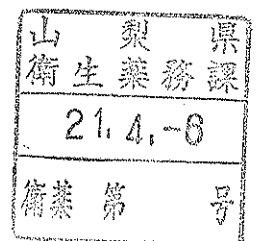 山梨県
衛生薬務課
21.4.-6
衛薬第　　号